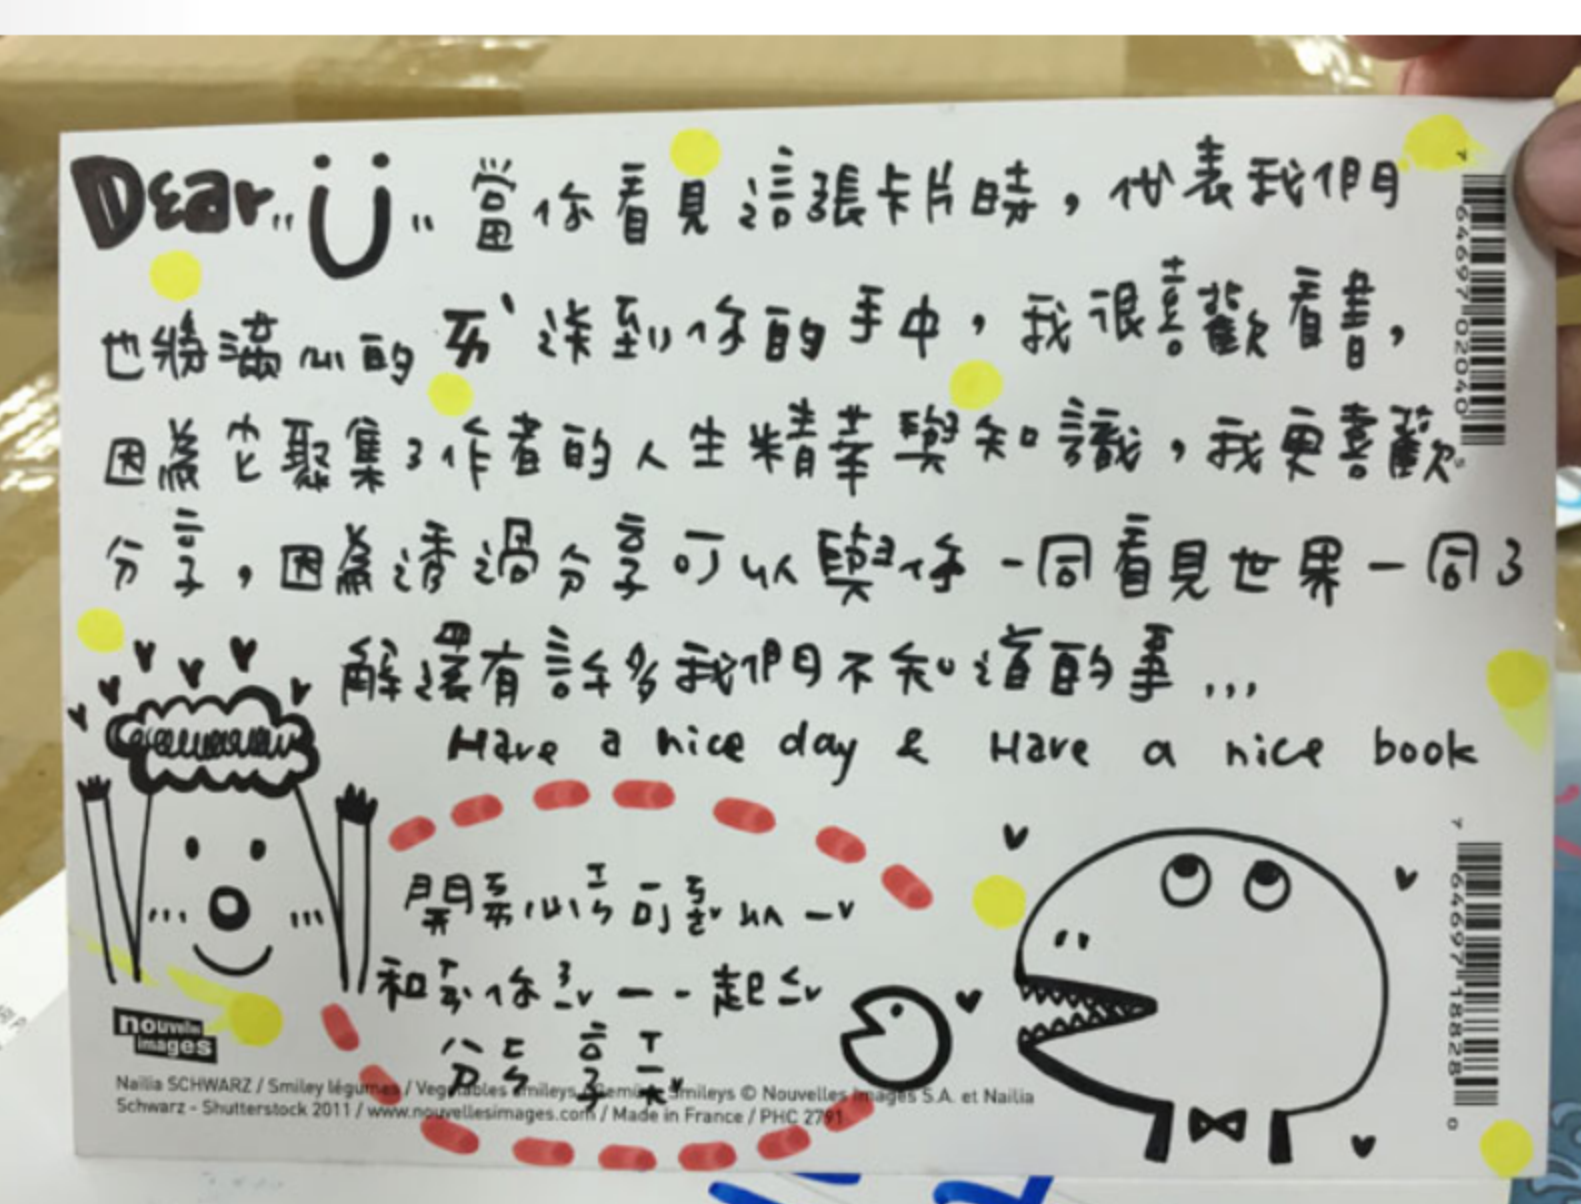 Dear "Ü" 當你看見這張卡片時，代表我們
也將滿心的ㄞˋ送到你的手中，我很喜歡看書，
因為它聚集了作者的人生精華與知識，我更喜歡
分享，因為透過分享可以與你一同看見世界一同了
解還有許多我們不知道的事...
Have a nice day & Have a nice book
開ㄎㄞ心ㄒㄧㄣ可ㄎㄜˇ以ㄧˇ
和ㄏㄢˋ你ㄋㄧˇ一ㄧ起ㄑㄧˇ
分ㄈㄣ享ㄒㄧㄤˇ
nouvelles
images
Nailia SCHWARZ / Smiley légumes / Vegetables smileys / Gemüse Smileys © Nouvelles Images S.A. et Nailia
Schwarz - Shutterstock 2011 / www.nouvellesimages.com / Made in France / PHC 2791
7 64697 02040
7 64697 18828 0